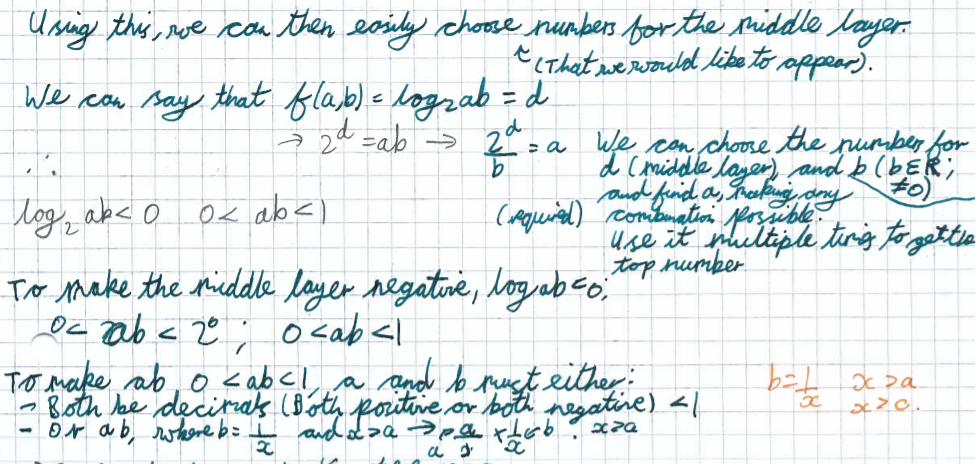 Using this, we can then easily choose numbers for the middle layer.
↑ (That we would like to appear).
We can say that f(a,b) = log₂ab = d
→ 2^d = ab → 2^d/b = a
We can choose the number for
d (middle layer), and b (b∈ℝ;
≠0)
and find a, making any
(required) combination possible.
Use it multiple times to get the
top number
∴
log₂ ab < 0 0 < ab < 1
To make the middle layer negative, log ab < 0;
0 < ab < 2⁰ ; 0 < ab < 1
To make ab, 0 < ab < 1, a and b must either:
→ Both be decimals (Both positive or both negative) < 1
- Or ab, where b = 1/x and x > a → a/x × 1/x b . x > a
b = 1/x x > a
x > 0.